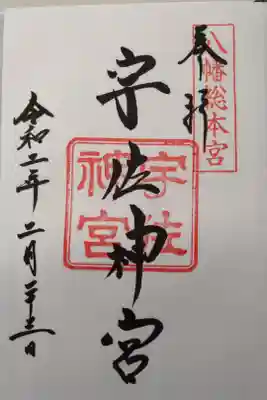 八幡総本宮
奉拝
宇佐神宮
宇佐神宮
令和二年二月二十三日